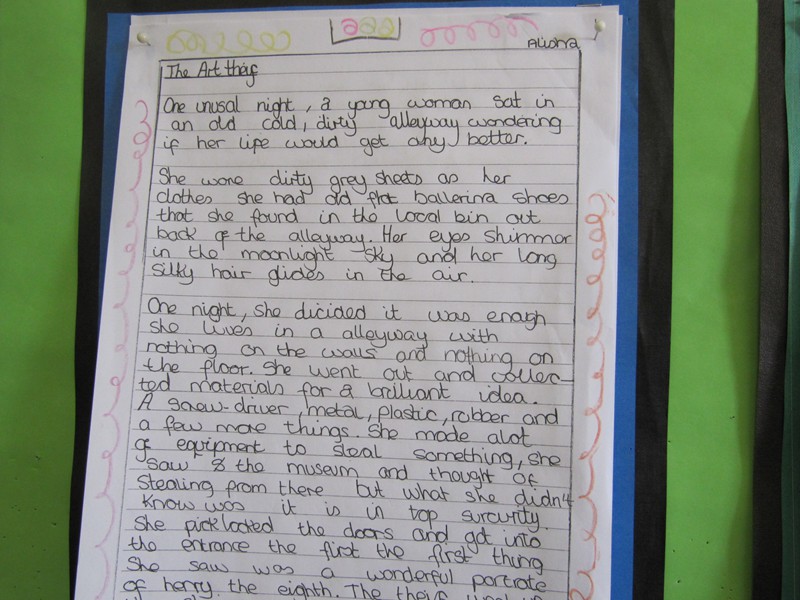 Alisha
The Art theif
One unusal night, a young woman sat in
an old cold, dirty alleyway wondering
if her life would get any better.
She wore dirty grey sheets as her
clothes she had old flat ballerina shoes
that she found in the local bin out
back of the alleyway. Her eyes shimmer
in the moonlight sky and her long
silky hair glides in the air.
One night, she dicided it was enough
she lives in a alleyway with
nothing on the walls and nothing on
the floor. She went out and collec-
ted materials for a brilliant idea.
A screw-driver, metal, plastic, rubber and
a few more things. She made alot
of equipment to steal something, she
saw the museum and thought of
stealing from there but what she didn't
know was it is in top surcurity.
She picklocked the doors and got into
the entrance the first the first thing
she saw was a wonderful portrate
of herry the eighth. The theif